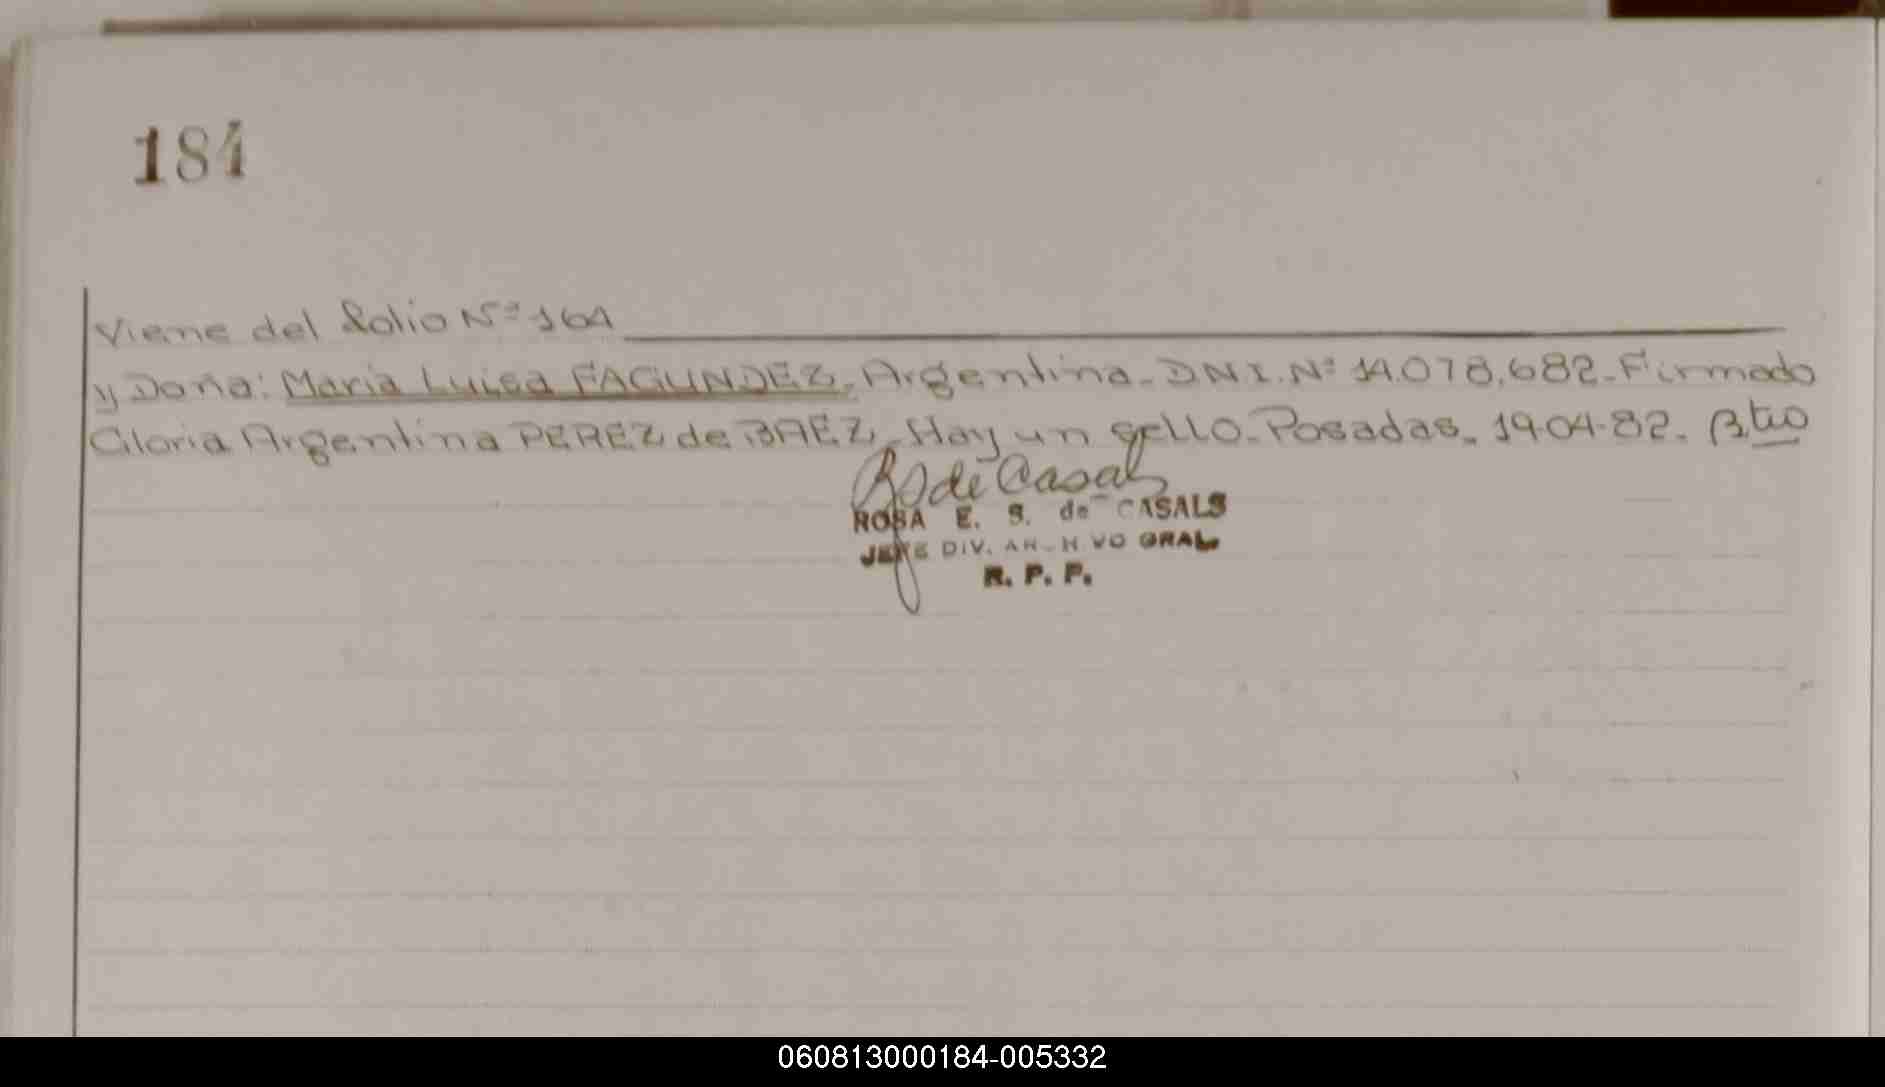 184
Viene del folio Nº 164
y Doña: Maria Luisa FAGUNDEZ, Argentina. DNI. Nº 14.078.682. Firmado
Gloria Argentina PEREZ de BAEZ. Hay un sello. Posadas. 19-04-82.
R S de Casals
ROSA E. S. de CASALS
JEFE DIV. ARCHIVO GRAL.
R. P. P.
060813000184-005332